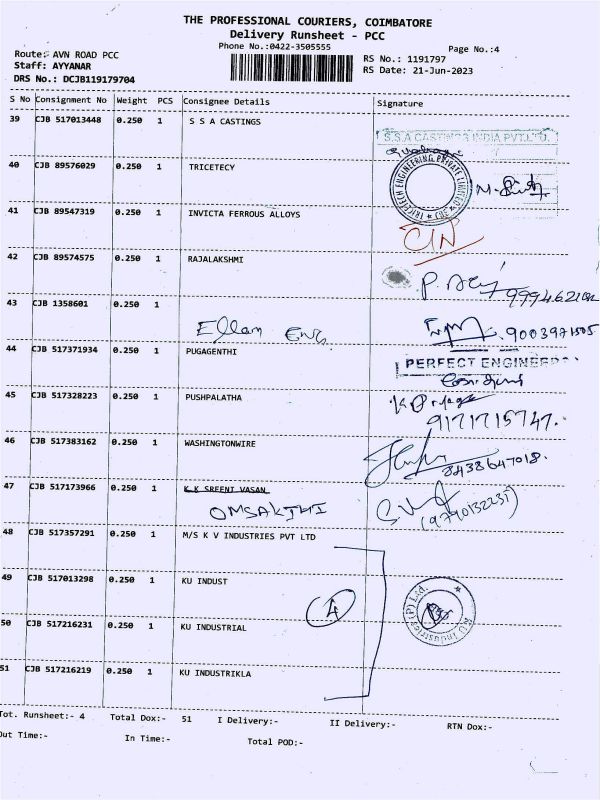 THE PROFESSIONAL COURIERS, COIMBATORE
Delivery Runsheet - PCC
Phone No.:0422-3505555
Page No.:4
Route:- AVN ROAD PCC
RS No.: 1191797
Staff: AYYANAR
RS Date: 21-Jun-2023
DRS No.: DCJB119179704
S No Consignment No Weight PCS Consignee Details Signature
39 CJB 517013448 0.250 1 S S A CASTINGS
S.S.A CASTINGS INDIA PVT.LTD.
40 CJB 89576029 0.250 1 TRICETECY
ENGINEERING PRIVATE LIMITED
41 CJB 89547319 0.250 1 INVICTA FERROUS ALLOYS
42 CJB 89574575 0.250 1 RAJALAKSHMI
43 CJB 1358601 0.250 1
Ellam Eng
9003971505
44 CJB 517371934 0.250 1 PUGAGENTHI
PERFECT ENGINEERS
45 CJB 517328223 0.250 1 PUSHPALATHA
9171715747.
46 CJB 517383162 0.250 1 WASHINGTONWIRE
8438647018.
47 CJB 517173966 0.250 1 K K SREENI VASAN
OMSAKTHI
(9790132231)
48 CJB 517357291 0.250 1 M/S K V INDUSTRIES PVT LTD
49 CJB 517013298 0.250 1 KU INDUST
4
KU Industries (P) Ltd.
50 CJB 517216231 0.250 1 KU INDUSTRIAL
51 CJB 517216219 0.250 1 KU INDUSTRIKLA
Tot. Runsheet:- 4 Total Dox:- 51 I Delivery:- II Delivery:- RTN Dox:-
Out Time:- In Time:- Total POD:-